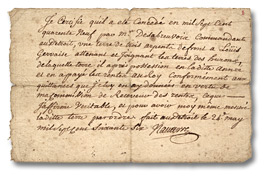 Je Certifie quil a eté Concedé en mil Sept Cent
quarente Neuf par Mr Commandant
au detroit, une terre de Cent arpents de a Louis
Gervais attenant et joignant les terres des
de laquelle terre il a pris possession en la ditte année
et en a payé les rentes au Roy Conformément aux
quittances que j'ai en en vertu de
ma de Receveur des rentes, ceque
Veritable, et pour avoir moy même
la ditte terre par ordre fait au detroit le 24 may
mil Sept Cent Soixante Six